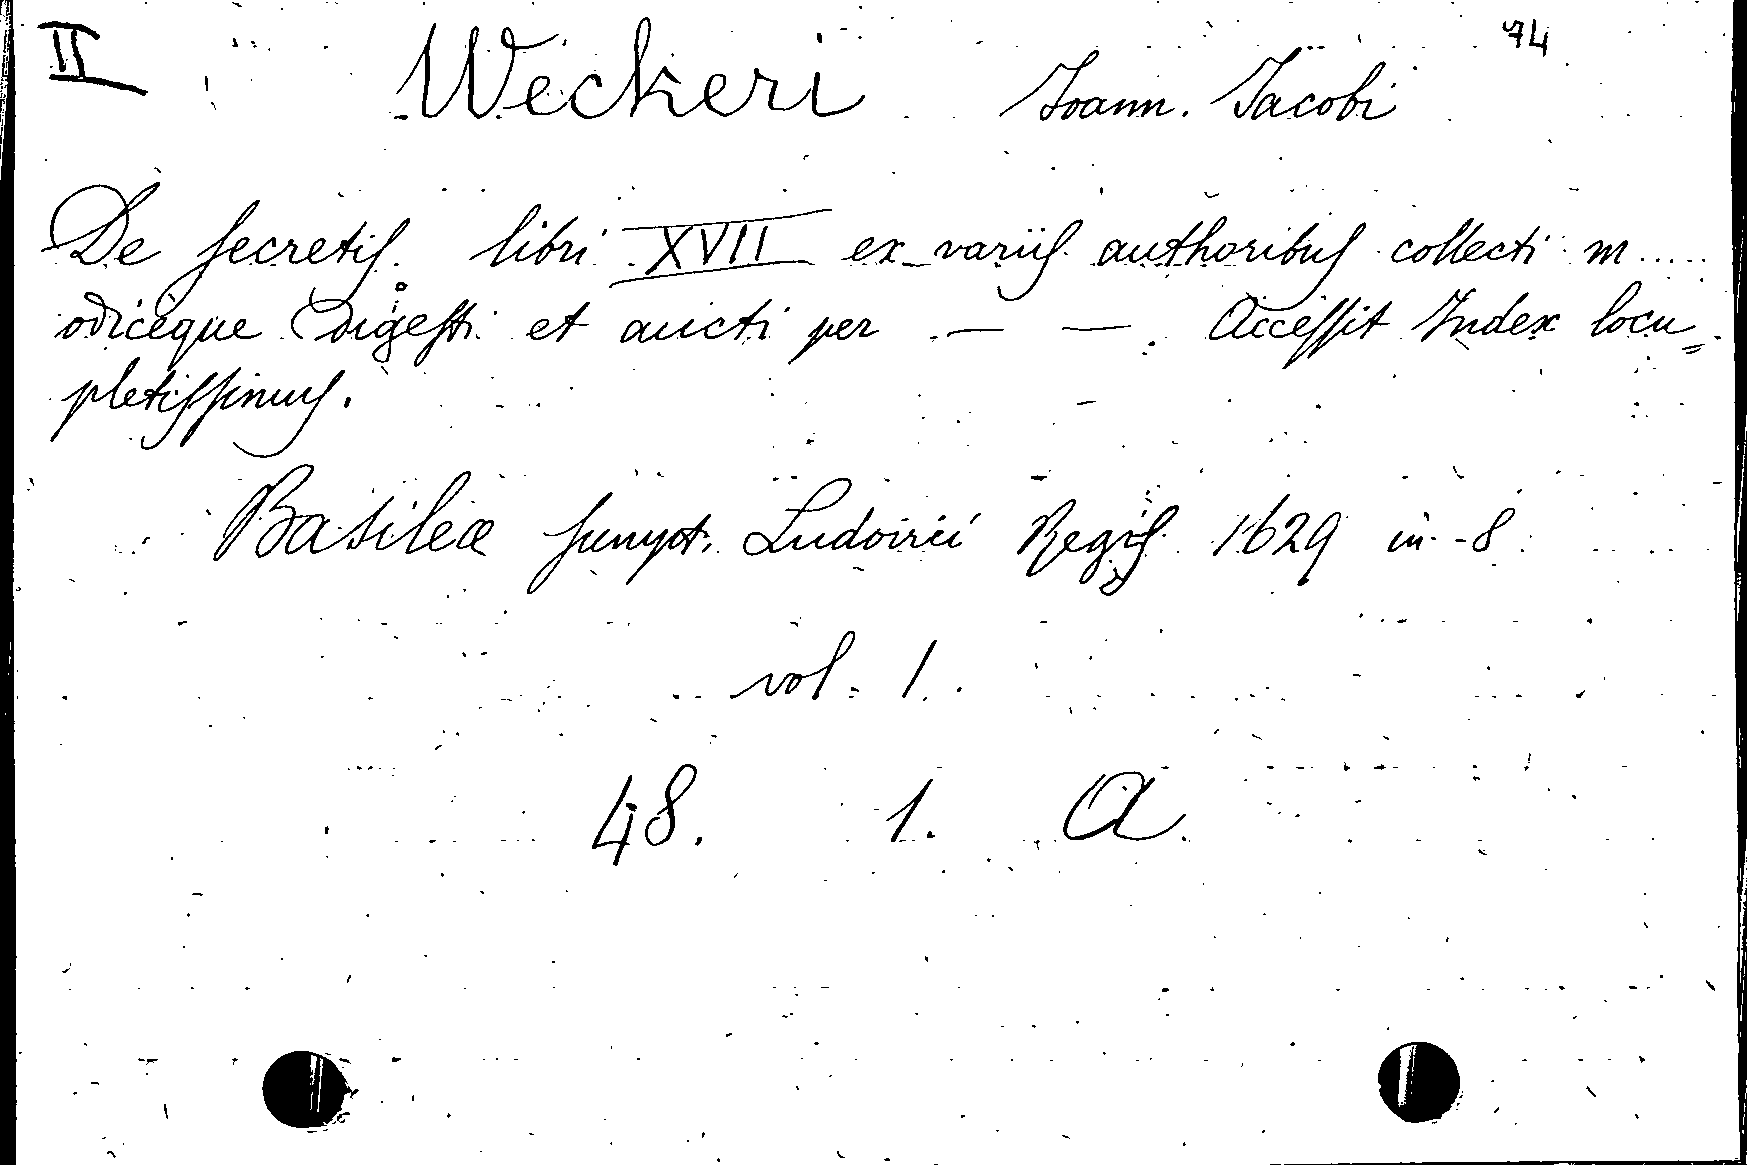 II Weckeri Joann. Jacobi 74
De secretis libri XVII ex variis authoribus collecti m.....
odiceque digesti et aucti per — — . Accessit Index locu=
pletissimus.
Basileæ sumpt. Ludovici Regis 1629 in-8
vol. 1.
48. 1. A.